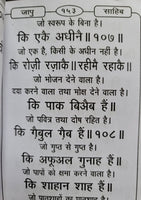 जापु १५३ साहिब
जो स्वरूप के बिना है।
कि एकै अधीनै॥१०७॥
जो एक है, किसी के अधीन नहीं है।
कि रोज़ी रज़ाकै॥रहीमै रहाकै॥
जो भोजन देने वाला है।
दया करने वाला तथा मोक्ष देने वाला है।
कि पाक बिऐब हैं॥
जो पवित्र तथा दोष रहित है।
कि ग़ैबुल ग़ैब हैं॥१०८॥
जो गुप्त से गुप्त है।
कि अफ़ूअल गुनाह हैं॥
जो पापों को क्षमा करने वाला है।
कि शाहान शाह हैं॥